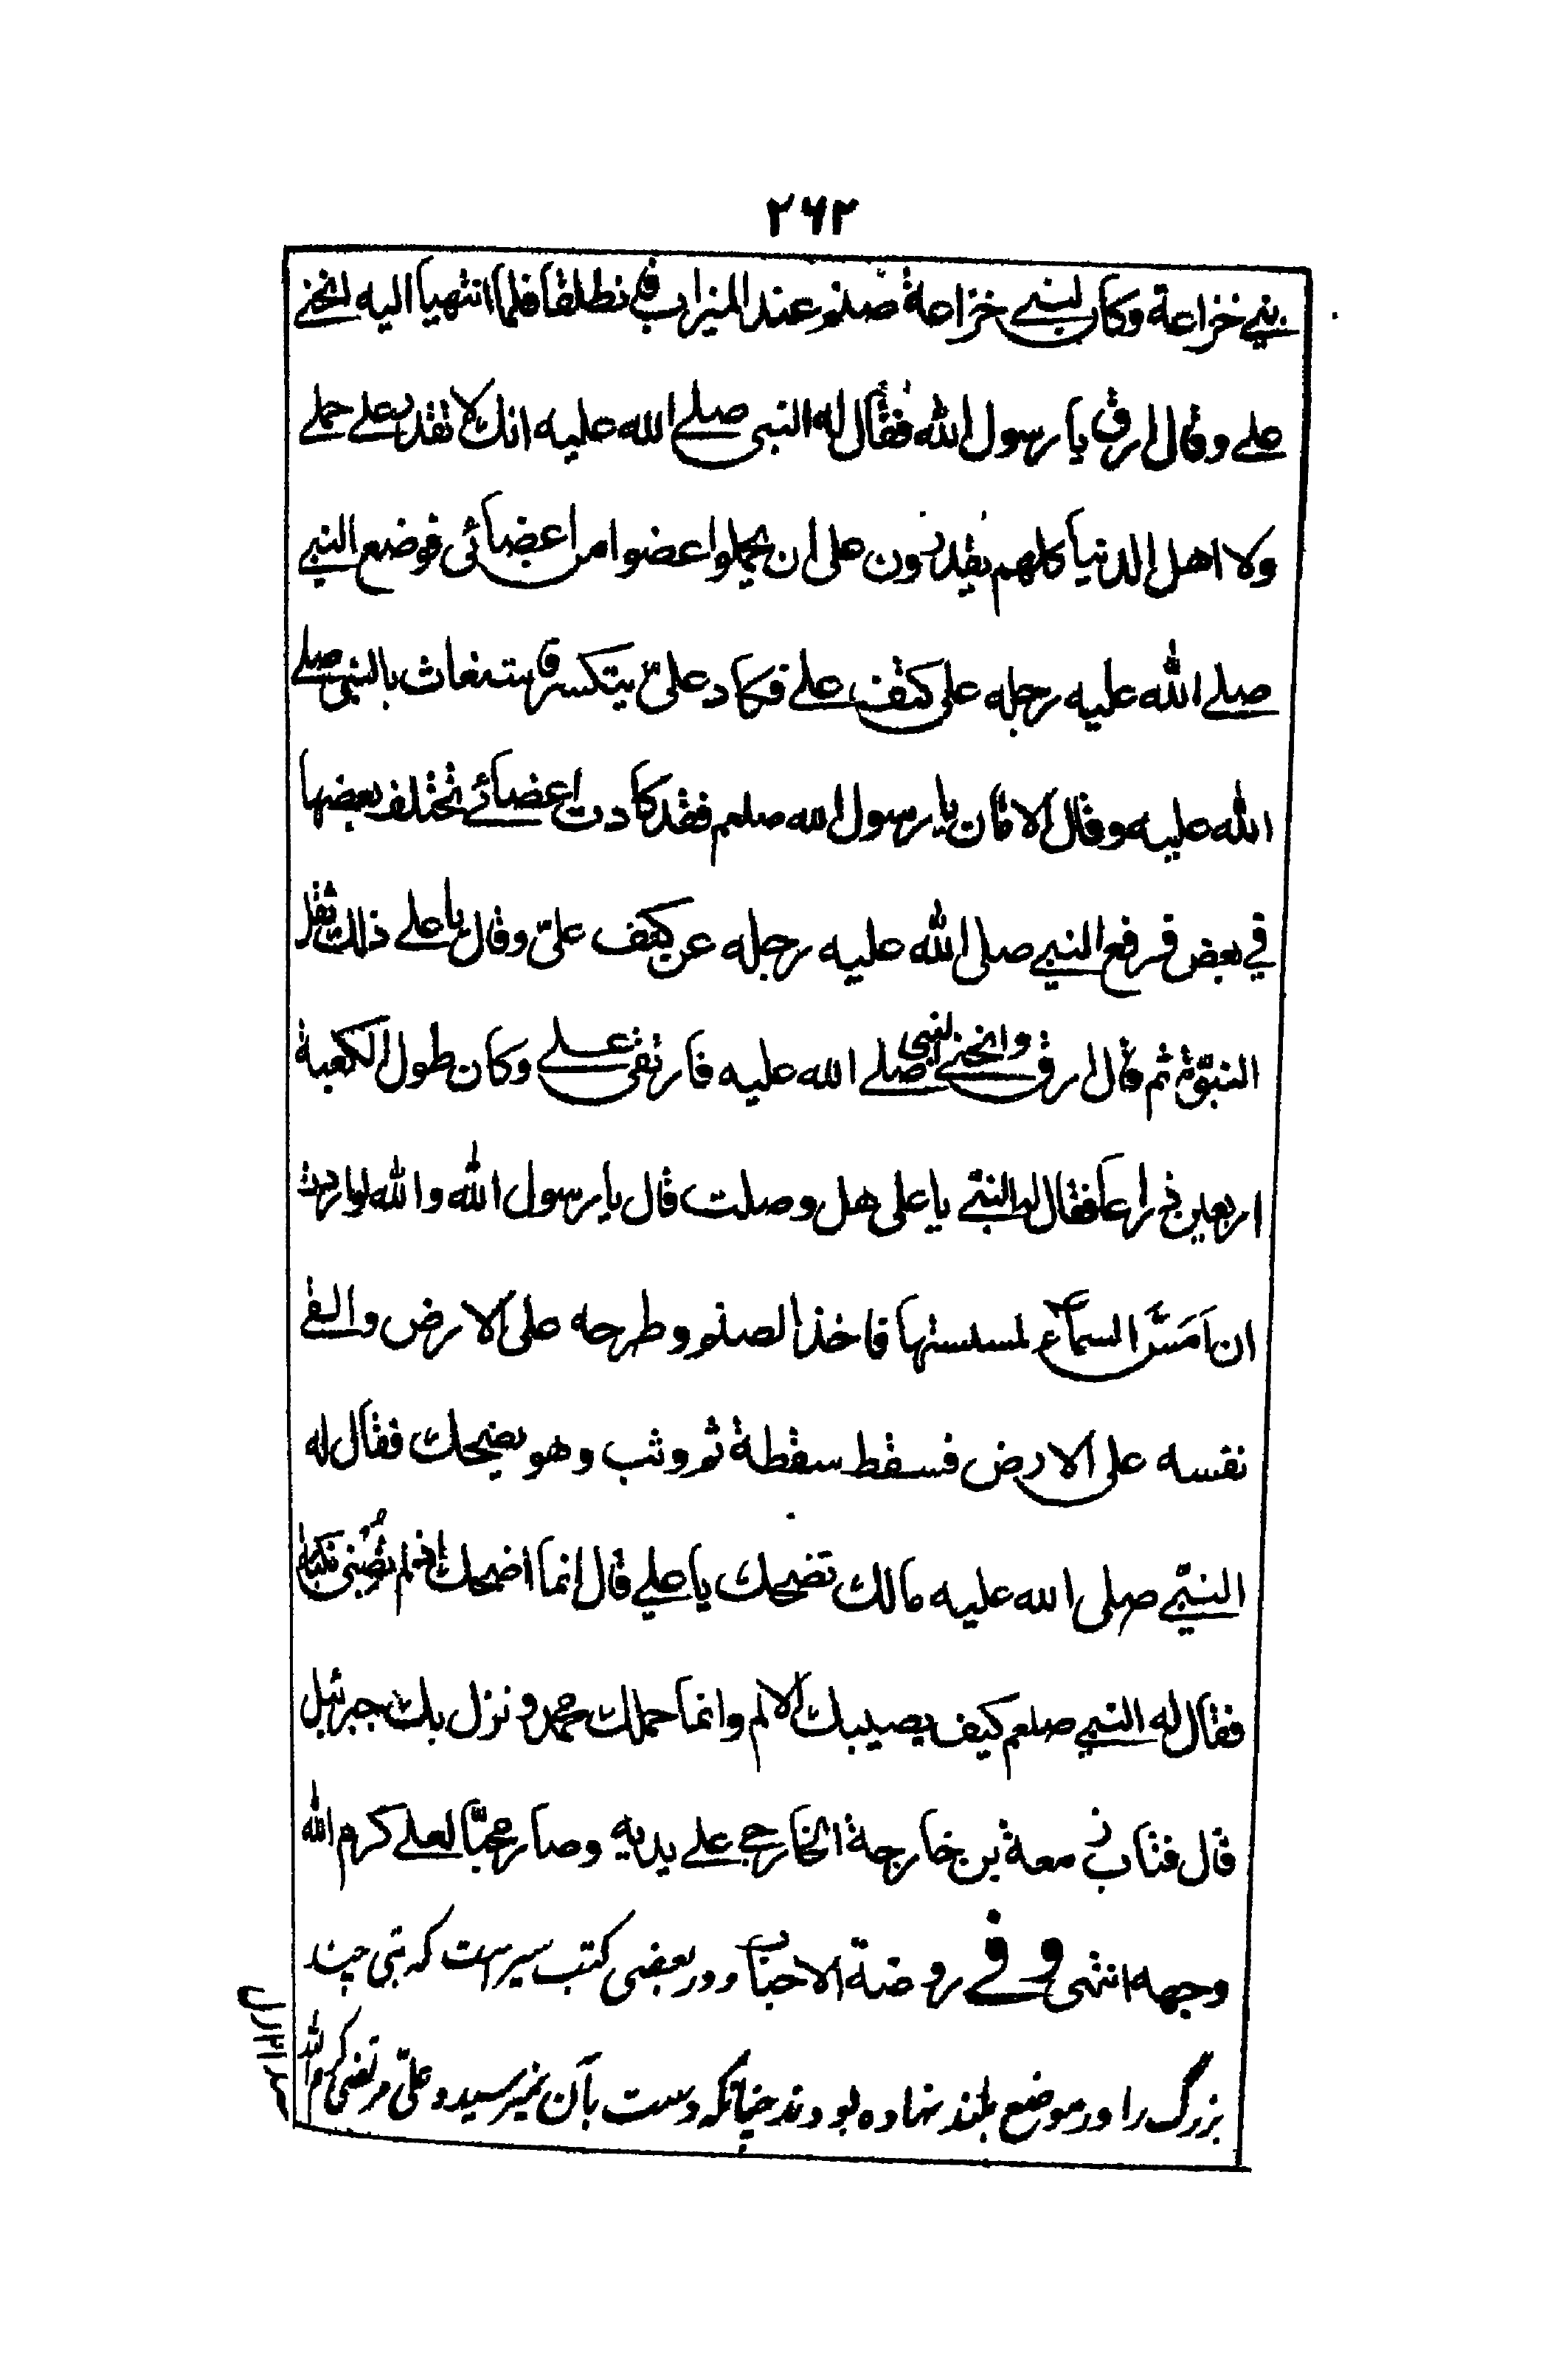 ٢٦٢
بني خزاعة وكان لبني خزاعة صنم عند الميزاب فانطلقا فلما انتهيا اليه انحنى
علي وقال ارق يا رسول الله فقال له النبي صلى الله عليه انك لا تقدر على حملي
ولا اهل الدنيا كلهم يقدرون على ان يحملوا عضوا من اعضائى فوضع النبي
صلى الله عليه رجله على كتف علي فكاد علىّ يتكسر فاستغاث بالنبي صلى
الله عليه وقال الامان يا رسول الله صلعم فقد كادت اعضائي تختلف بعضها
في بعض فرفع النبي صلى الله عليه رجله عن كتف علىّ وقال يا علي ذلك ثقل
النبوّة ثم قال ارق وانحنى النبي صلى الله عليه فارتقى علي وكان طول الكعبة
اربعين ذراعا فقال له النبي يا على هل وصلت قال يا رسول الله والله لو اردت
ان اَمَسَّ السماء لمسستها فاخذ الصنم وطرحه على الارض والقى
نفسه على الارض فسقط سقطة ثم وثب وهو يضحك فقال له
النبي صلى الله عليه مالك تضحك يا علي قال انما اضحك اذ لم تُصبنى نكبة
فقال له النبي صلعم كيف يصيبك الالم وانما حملك محمد ونزل بك جبرئيل
قال فتاب زمعة بن خارجة الخارجي على يديه وصار محبّا لعلي كرم الله
وجهه انتهى وفي روضة الاحباب ودر بعضى كتب سير است كه بتى چند
بزرگ را در موضع بلند نهاده بودند چنانكه دست بآن نميرسيد وعلىّ مرتضى كرم الله